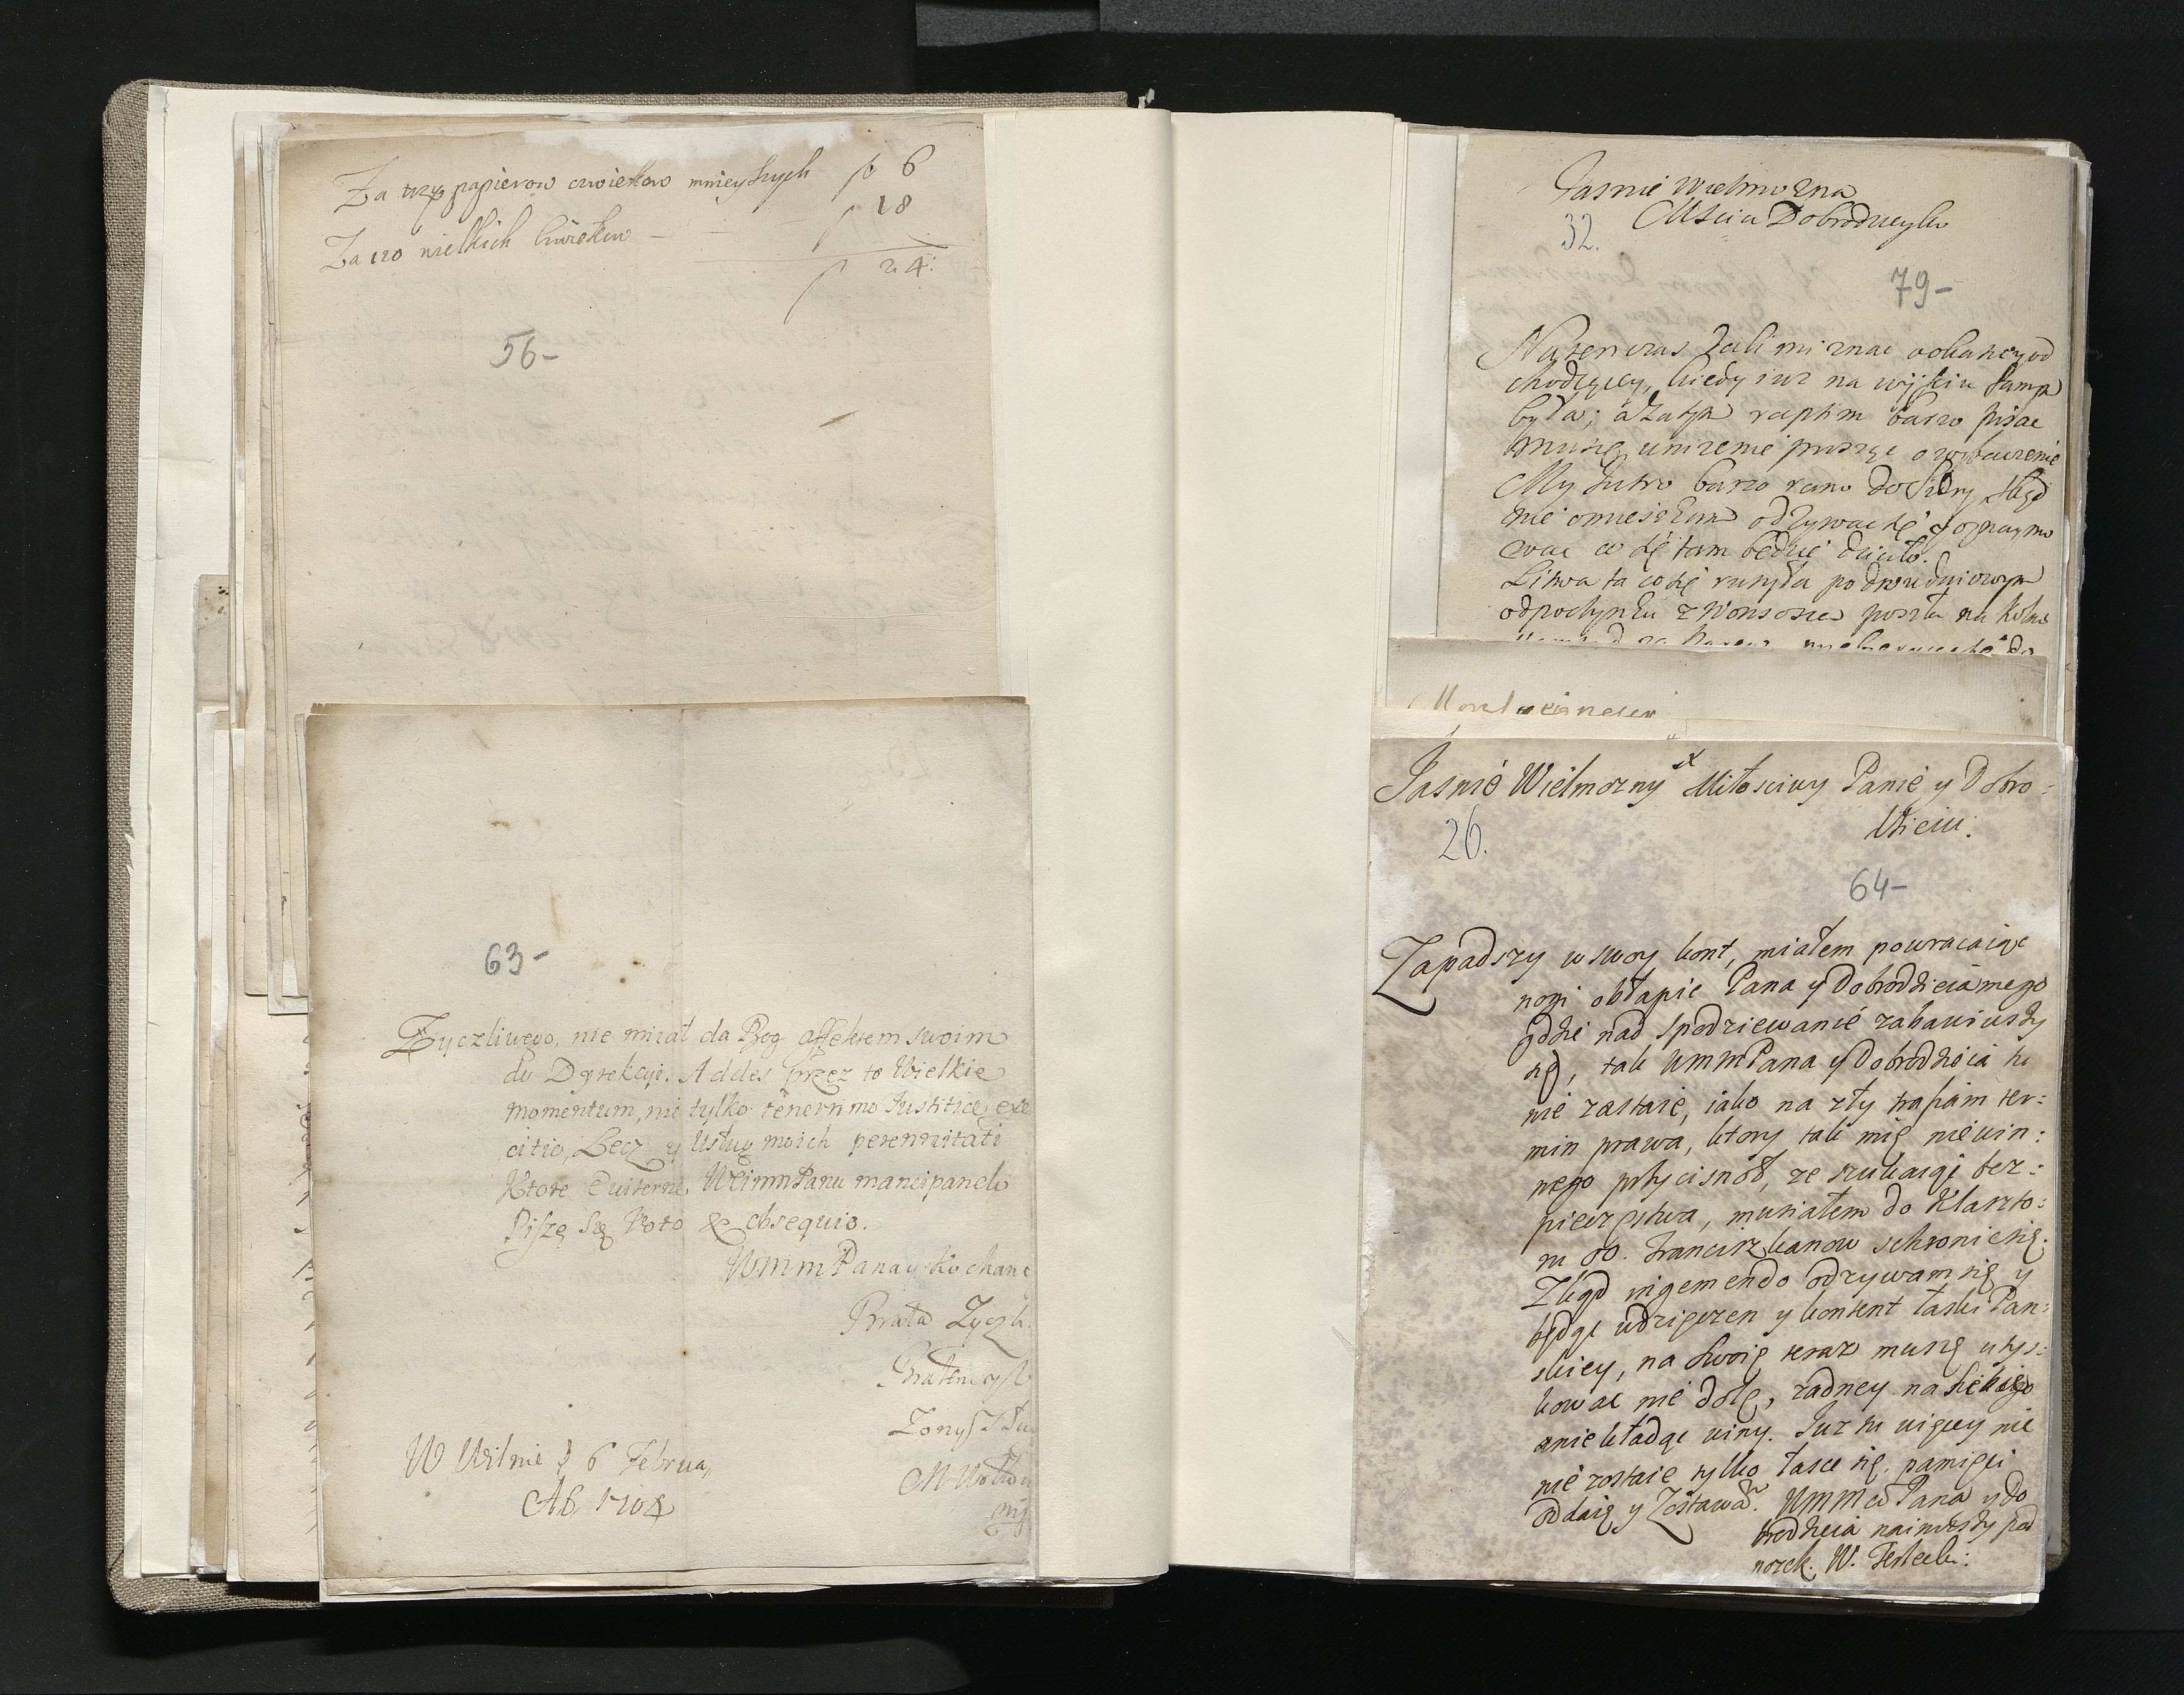 Za trzy papierow cwiekow mnieyszych f 6
Za 120 wielkich cwiekow — f 18
f 24:
56-
63-
Zyczliwego, nie miał da Bog affektem swoim
do Dyrekcyi. Addes przez to Wielkie
momentum, nie tylko tenerrimo Justitiæ exe
citio, Lecz y Usług moich perennitati
Ktore Eviterne WMmPanu mancipando
Piszę się Voto & obsequio.
WMmPana y kochane
Brata Zycz
W Wilnie d 6 Februa
Ao 1704
Jasnie Wielmozna
Mscia Dobrodzeyko
32.
79-
Na ten czas dali mi znac o okazyey od
chodzącey, kiedy iuz na wyjsciu sama
była; a zatym raptim barzo pisac
muszę, unizenie proszę o wybaczenie
My Jutro barzo rano do Sidry, skąd
nie omieszkam odzywac się y oznaymo
wac co się tam będzie działo.
Litwa ta co się ruszyła po dwudniowym
odpoczynku z Wonsosza poszła na Kolno
26.
Jasnie Wielmozny Miłosciwy Panie y Dobro:
dzieiu:
64-
Zapadszy w swoy kont, miałem powracaiąc
nogi obłapic Pana y Dobrodzieia mego
gdzie nad spodziewanie zabawiwszy
się, tak WMMPana y Dobrodzieia tu
nie zastaię, iako na zły trafiam ter:
min prawa, ktory tak mię niewin:
nego przycisnoł, ze szukaiąc bez:
pieczęstwa, musiałem do Klaszto:
ru OO. Franciszkanow schronic się.
Zkąd ingemendo odzywam się y
będąc udzięczen y kontent łaski Pan:
skiey, na swoię teraz muszę utys:
kowac nie dolę, zadney na siebie
nie kładąc winy. Juz tu więcey nie
nie zostaie tylko łasce się, pamięci
oddaię y Zostawam. WMMCi Pana y Do
brodzieia nainizszy pod
nozek. W.